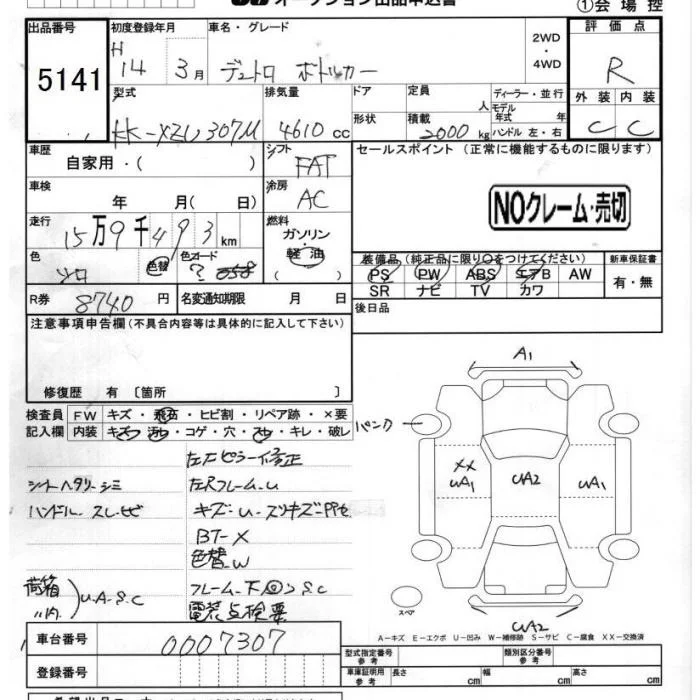 オークション出品申込書
①会場控
出品番号 初度登録年月 車名・グレード 2WD・4WD 評価点
5141 H14 3月 デュトロ ボトルカー R
型式 排気量 ドア 定員 人 ディーラー・並行 外装 内装
KK-XZU307M 4610cc 形状 積載 2000kg モデル年式 年 ハンドル 左・右 C C
車歴 自家用・( ) シフト FAT セールスポイント (正常に機能するものに限ります)
車検 年 月( 日) 冷房 AC
NOクレーム・売切
走行 15万9千493km 燃料 ガソリン・軽油 ( )
色 シロ 色替 色コード ? 058
装備品(純正品に限り○をつけてください) 新車保証書
PS PW ABS エアB AW 有・無
SR ナビ TV カワ
R券 8740円 名変通知期限 月 日 後日品
注意事項申告欄(不具合内容等は具体的に記入して下さい)
修復歴 有 〔箇所 〕
検査員 FW キズ・飛石・ヒビ割・リペア跡・×要
記入欄 内装 キズ・汚れ・コゲ・穴・スレ・キレ・破レ
A1
パンク
XX
UA1 UA2 UA1
UA2
スペア
左Fピラー修正
シートヘタリ・シミ 左Rフレームu
ハンドル スレ・ヒビ キズ・u・スリキズ=PPモ
BT-X
色替W
荷箱 〃内 )u.A.S.C フレーム・下回りS.C
電荒点検要
A-キズ E-エクボ U-凹み W-補修跡 S-サビ C-腐食 XX-交換済
車台番号 0007307
型式指定番号 参考 類別区分番号 参考
登録番号 車庫証明用 参考 長さ cm 幅 cm 高さ cm